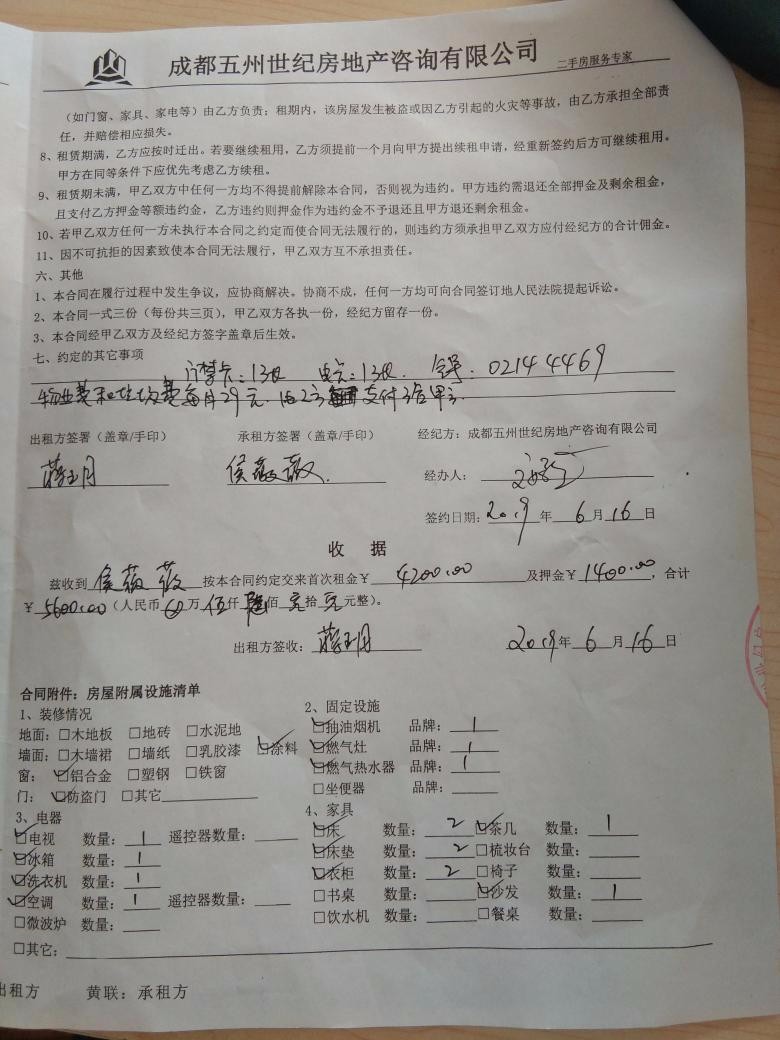 成都五州世纪房地产咨询有限公司 二手房服务专家
（如门窗、家具、家电等）由乙方负责；租期内，该房屋发生被盗或因乙方引起的火灾等事故，由乙方承担全部责
任，并赔偿相应损失。
8、租赁期满，乙方应按时迁出。若要继续租用，乙方须提前一个月向甲方提出续租申请，经重新签约后方可继续租用。
甲方在同等条件下应优先考虑乙方续租。
9、租赁期未满，甲乙双方中任何一方均不得提前解除本合同，否则视为违约。甲方违约需退还全部押金及剩余租金，
且支付乙方押金等额违约金，乙方违约则押金作为违约金不予退还且甲方退还剩余租金。
10、若甲乙双方任何一方未执行本合同之约定而使合同无法履行的，则违约方须承担甲乙双方应付经纪方的合计佣金。
11、因不可抗拒的因素致使本合同无法履行，甲乙双方互不承担责任。
六、其他
1、本合同在履行过程中发生争议，应协商解决。协商不成，任何一方均可向合同签订地人民法院提起诉讼。
2、本合同一式三份（每份共三页），甲乙双方各执一份，经纪方留存一份。
3、本合同经甲乙双方及经纪方签字盖章后生效。
七、约定的其它事项
门禁卡：1张 电卡：1张 02144469
物业费和垃圾费每月29元 由乙方 支付给甲方
出租方签署（盖章/手印） 承租方签署（盖章/手印） 经纪方：成都五州世纪房地产咨询有限公司
侯薇薇 经办人：
签约日期：2019年6月16日
收 据
兹收到 侯薇薇 按本合同约定交来首次租金￥ 4200.00 及押金￥1400.00，合计
￥5600.00（人民币 万伍仟陆佰零拾零元整）。
出租方签收： 2019年6月16日
合同附件：房屋附属设施清单
1、装修情况 2、固定设施
地面：□木地板 □地砖 □水泥地 ☑抽油烟机 品牌：1
墙面：□木墙裙 □墙纸 □乳胶漆 ☑涂料 ☑燃气灶 品牌：1
窗： ☑铝合金 □塑钢 □铁窗 ☑燃气热水器 品牌：1
门： ☑防盗门 □其它 □坐便器 品牌：
3、电器 4、家具
☑电视 数量：1 遥控器数量： ☑床 数量：2 ☑茶几 数量：1
☑冰箱 数量：1 ☑床垫 数量：2 □梳妆台 数量：
☑洗衣机 数量：1 ☑衣柜 数量：2 □椅子 数量：
☑空调 数量：1 遥控器数量： □书桌 数量： ☑沙发 数量：1
□微波炉 数量： □饮水机 数量： □餐桌 数量：
□其它：
出租方 黄联：承租方